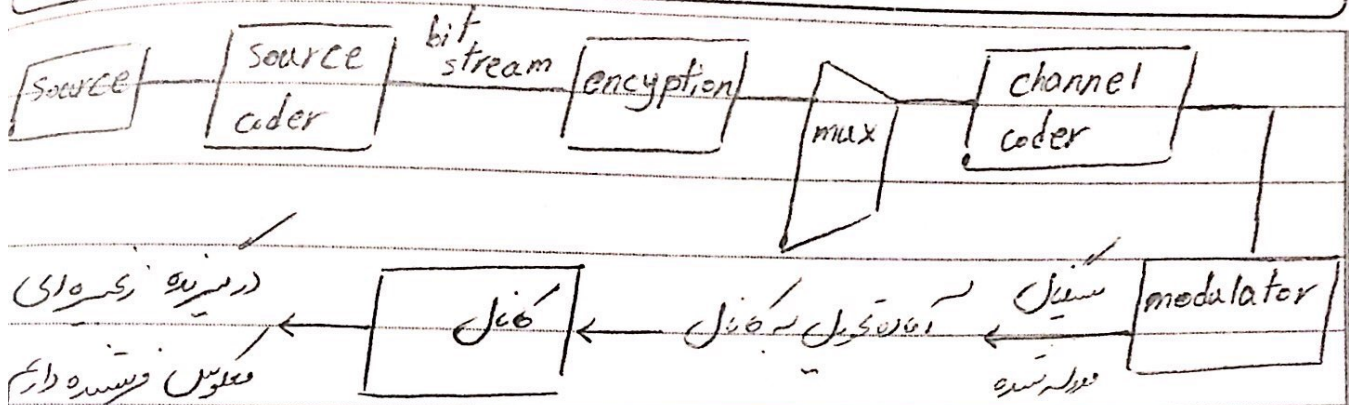 source
source
coder
bit
stream
encyption
mux
channel
coder
modulator
سیگنال
مدوله شده
آماده تحویل به کانال
کانال
در گیرنده زنجیره ای
معکوس فرستنده داریم